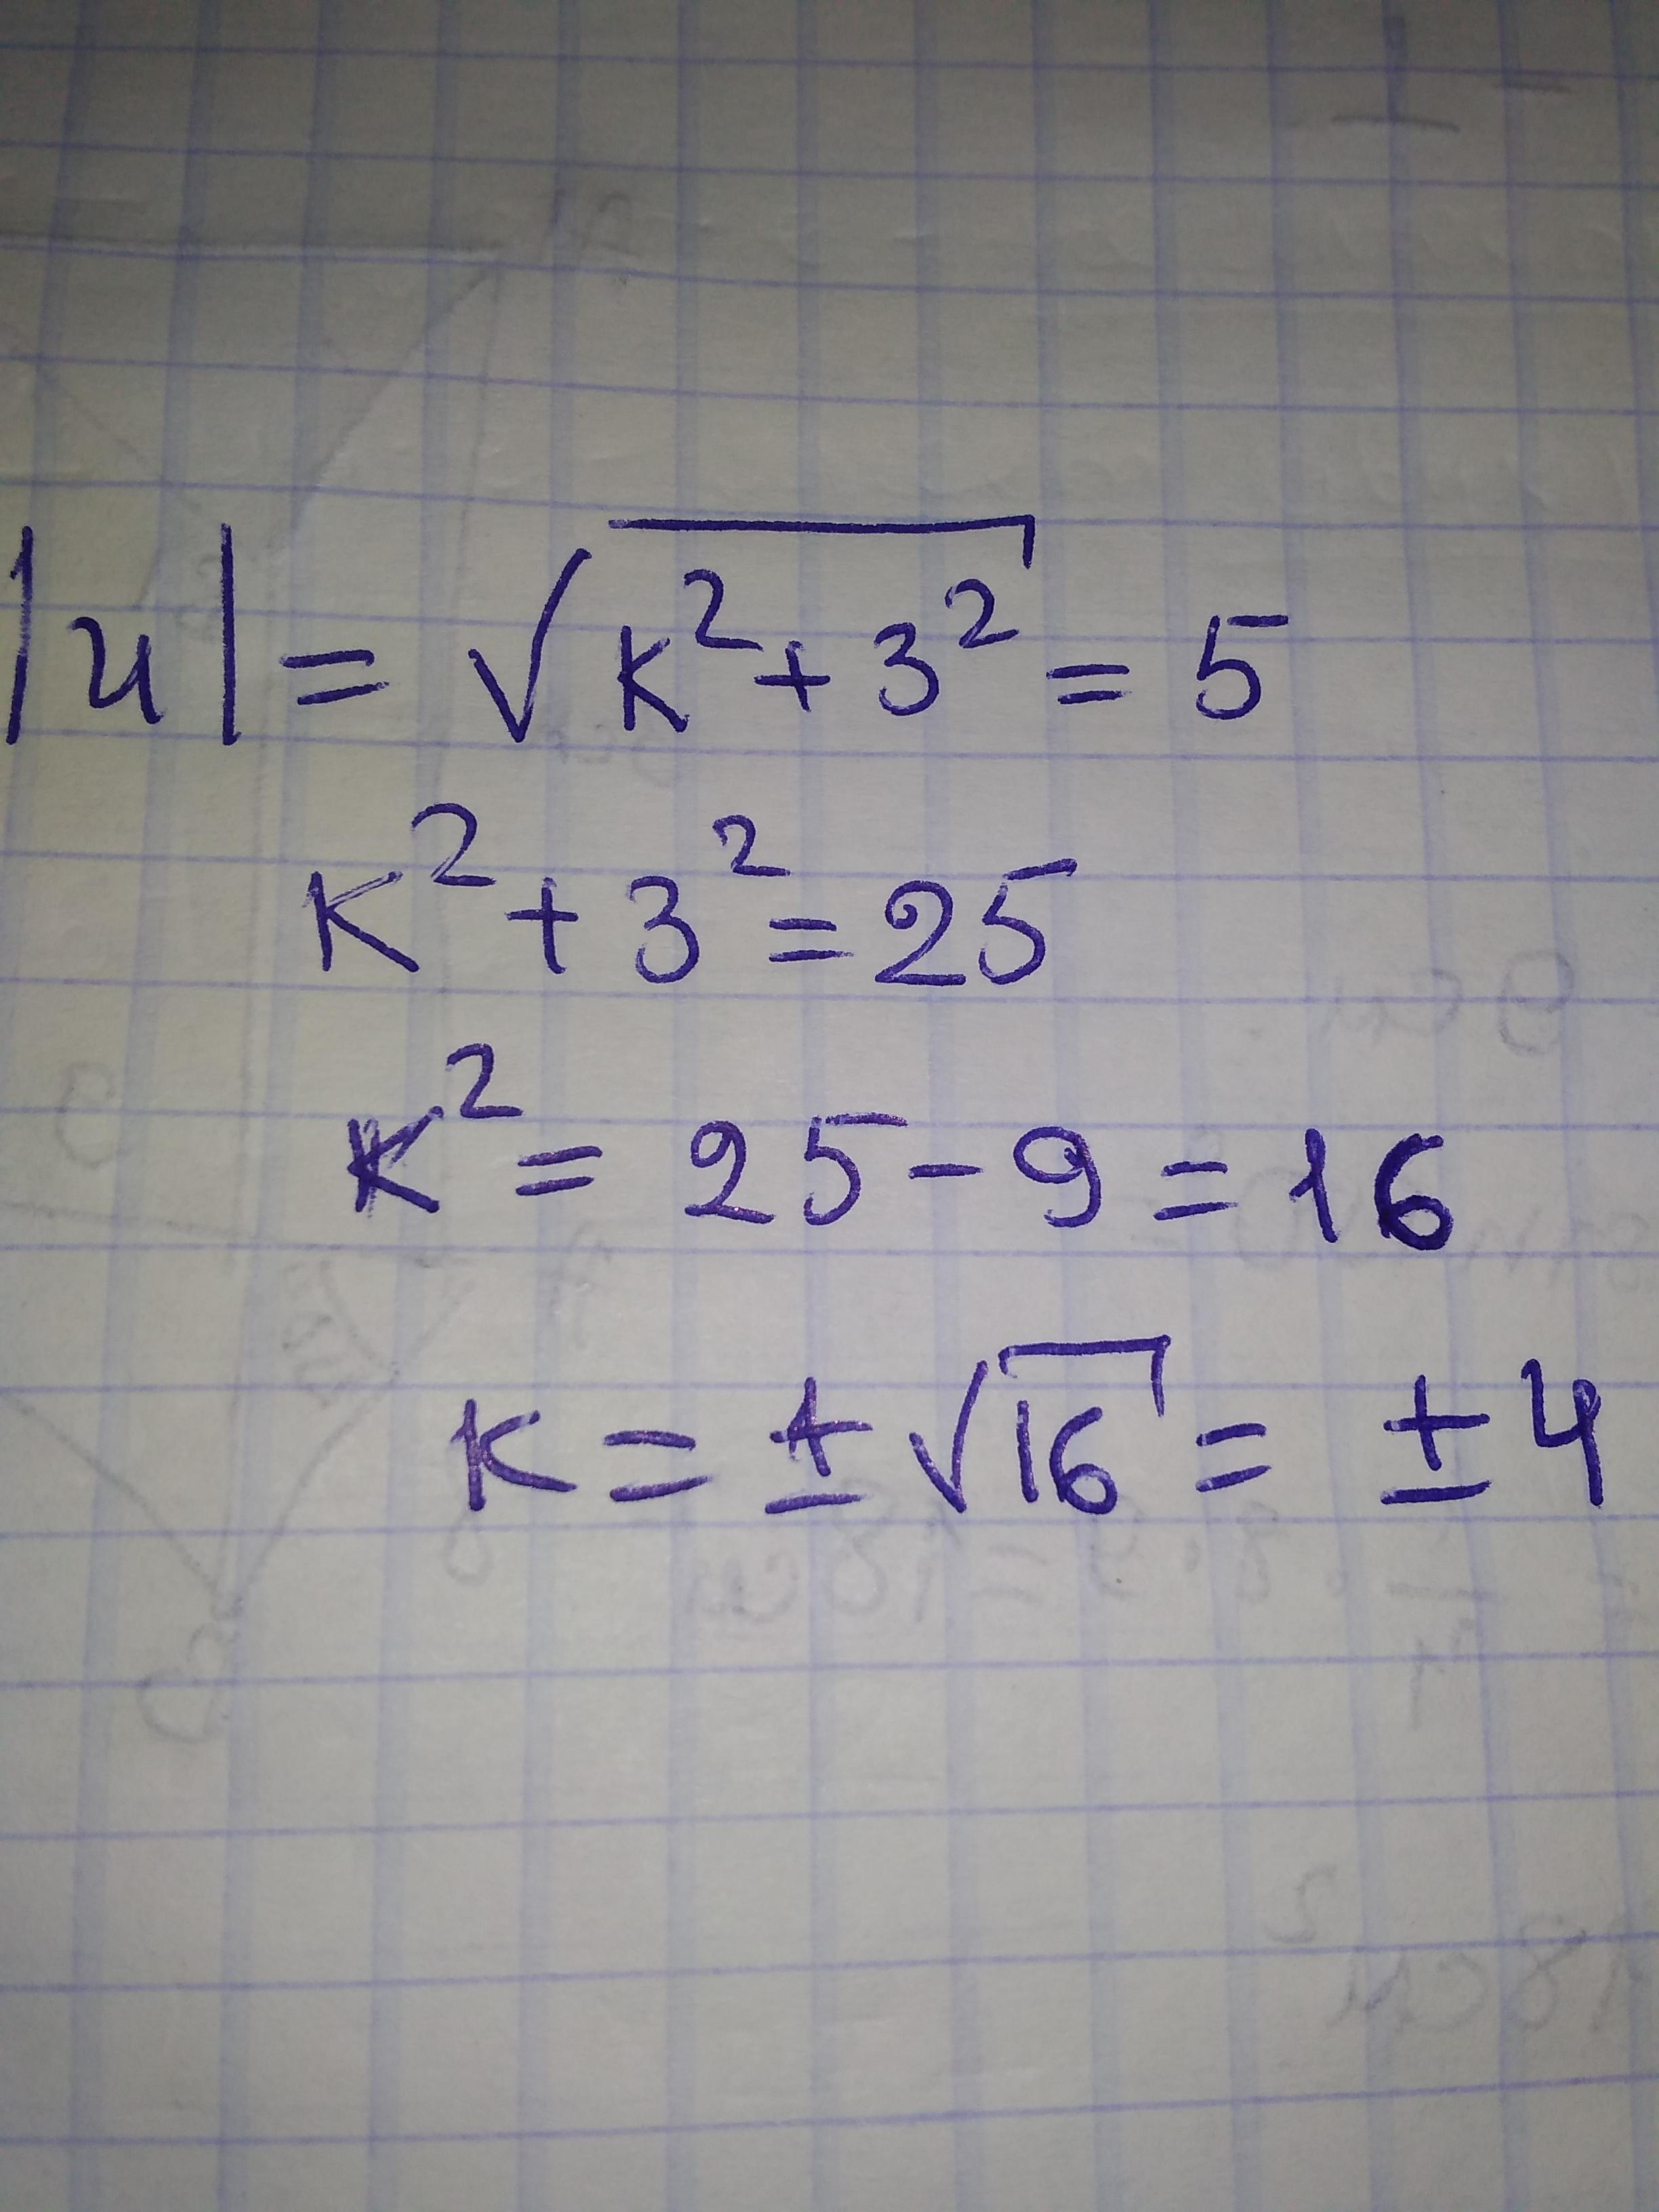 |u| = √(k² + 3²) = 5
k² + 3² = 25
k² = 25 - 9 = 16
k = ± √16 = ± 4